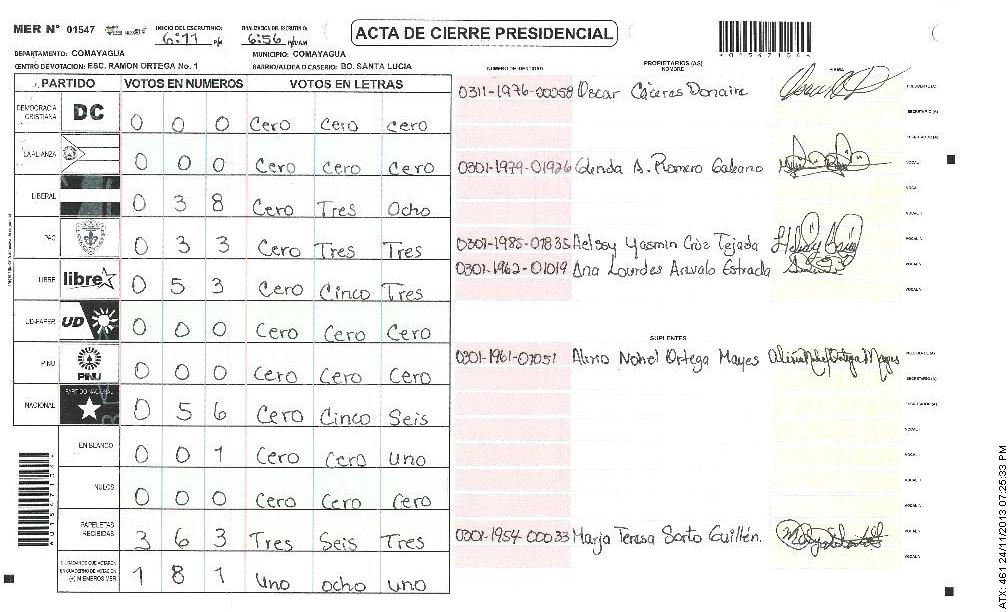 MER Nº 01547 INICIO DEL ESCRUTINIO: 6:11 P/M FINALIZACION DEL ESCRUTINIO: 6:56 P/M/AM
ACTA DE CIERRE PRESIDENCIAL
DEPARTAMENTO: COMAYAGUA MUNICIPIO: COMAYAGUA
CENTRO DE VOTACION: ESC. RAMON ORTEGA No. 1 BARRIO/ALDEA O CASERIO: BO. SANTA LUCIA
PARTIDO VOTOS EN NUMEROS VOTOS EN LETRAS
DEMOCRACIA CRISTIANA DC 0 0 0 Cero Cero cero
LA ALIANZA 0 0 0 Cero Cero Cero
LIBERAL 0 3 8 Cero Tres Ocho
PAC 0 3 3 Cero Tres Tres
LIBRE libre 0 5 3 Cero Cinco Tres
UD-FAPER UD 0 0 0 Cero Cero Cero
PINU PINU 0 0 0 Cero Cero Cero
NACIONAL PARTIDO NACIONAL 0 5 6 Cero Cinco Seis
EN BLANCO 0 0 1 Cero Cero uno
NULOS 0 0 0 Cero Cero Cero
PAPELETAS RECIBIDAS 3 6 3 Tres Seis Tres
CIUDADANOS QUE VOTARON EN CUADERNO DE VOTACION (+) MIEMBROS MER 1 8 1 uno ocho uno
NUMERO DE IDENTIDAD PROPIETARIOS (AS) NOMBRE FIRMA
0311-1976-00058 Oscar Cáceres Donaire PRESIDENTE (A)
SECRETARIO (A)
0301-1979-01926 Glenda A. Romero Galeano VOCAL I
0301-1985-01835 Helssy Yasmin Cruz Tejada
0301-1962-01019 Ana Lourdes Arevalo Estrada
SUPLENTES
0301-1961-01051 Alirio Nohel Ortega Mayes PRESIDENTE (A)
SECRETARIO (A)
ESCRUTADOR (A)
VOCAL I
0301-1954-00033 Maria Teresa Sorto Guillén.
ATX: 461 24/11/2013 07:25:33 PM